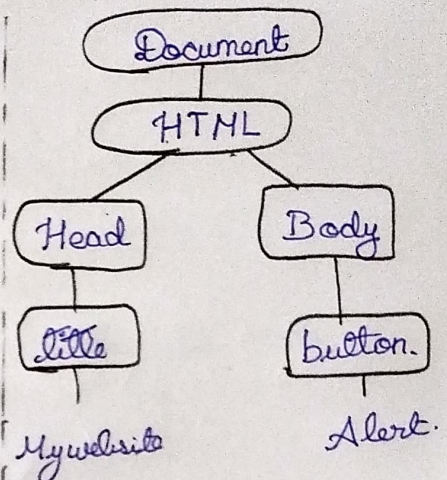 Document
HTML
Head
Body
title
button.
Mywebsite
Alert.